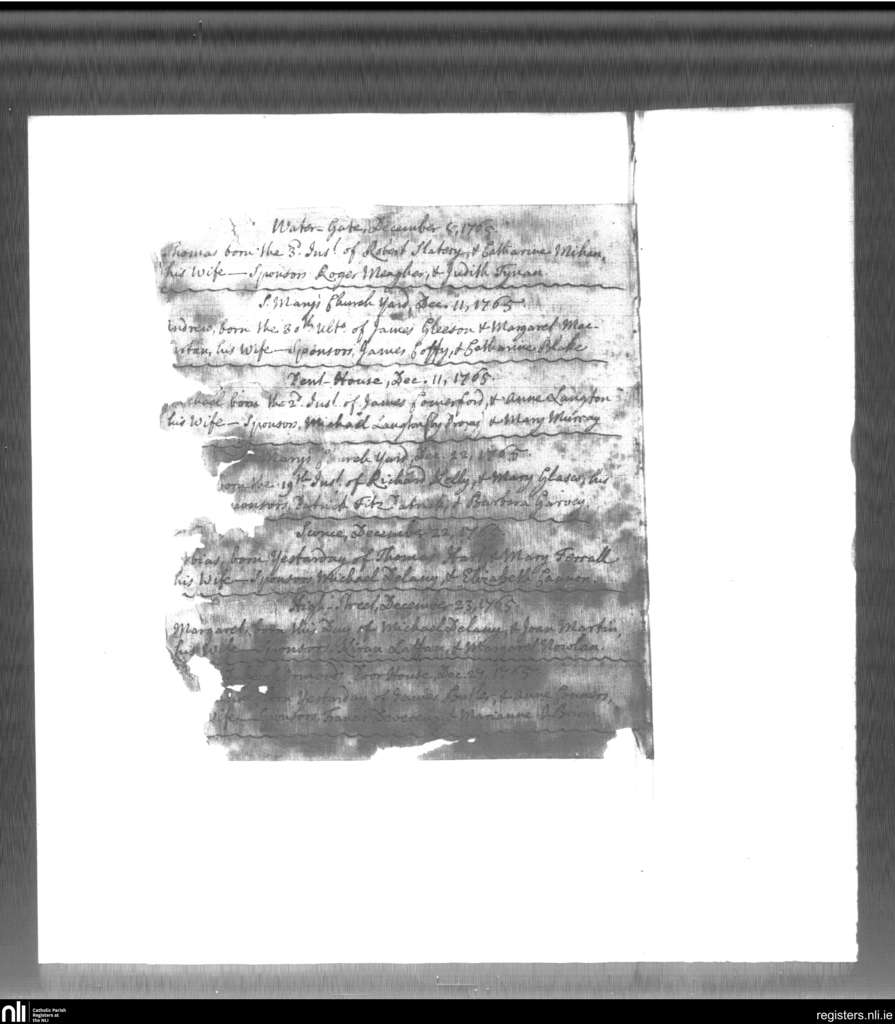 Water-Gate, December 5, 1765.
Thomas born the 3d. Inst. of Robert Slatery, & Catharine Mihan,
his Wife — Sponsors Roger Meagher, & Judith Tynan.
S. Mary's Church Yard, Dec. 11, 1765.
Andrew, born the 30th Ulto. of James Gleeson & Margaret Mac-
his Wife — Sponsors, James Coffy, & Catharine Blake
Pent-House, Dec. 11, 1765.
born the 2d. Inst. of James Comerford, & Anne Langton
his Wife — Sponsors, Michael Langton & Mary Murray
Mary's Church Yard, Dec. 22, 1765
born the 19th Inst. of Richard Kelly, & Mary his
Sponsors, Patrick Fitz Patrick, & Barbara
December 22, 17
born Yesterday of Thomas & Mary Ferrall
his Wife — Sponsors, Michael Delany, & Elizabeth Gannon.
High-Street, December 23, 1765.
Margaret, born this Day of Michael Delany, & Joan Martin
his Wife — Sponsors, Kiran Lattan, & Margaret Nowlan.
Poor House, Dec. 27, 1765
Yesterday of James Butler, & Anne Connors,
Wife — Sponsors, Francis & Marianne
nli
Catholic Parish
Registers at
the NLI
registers.nli.ie